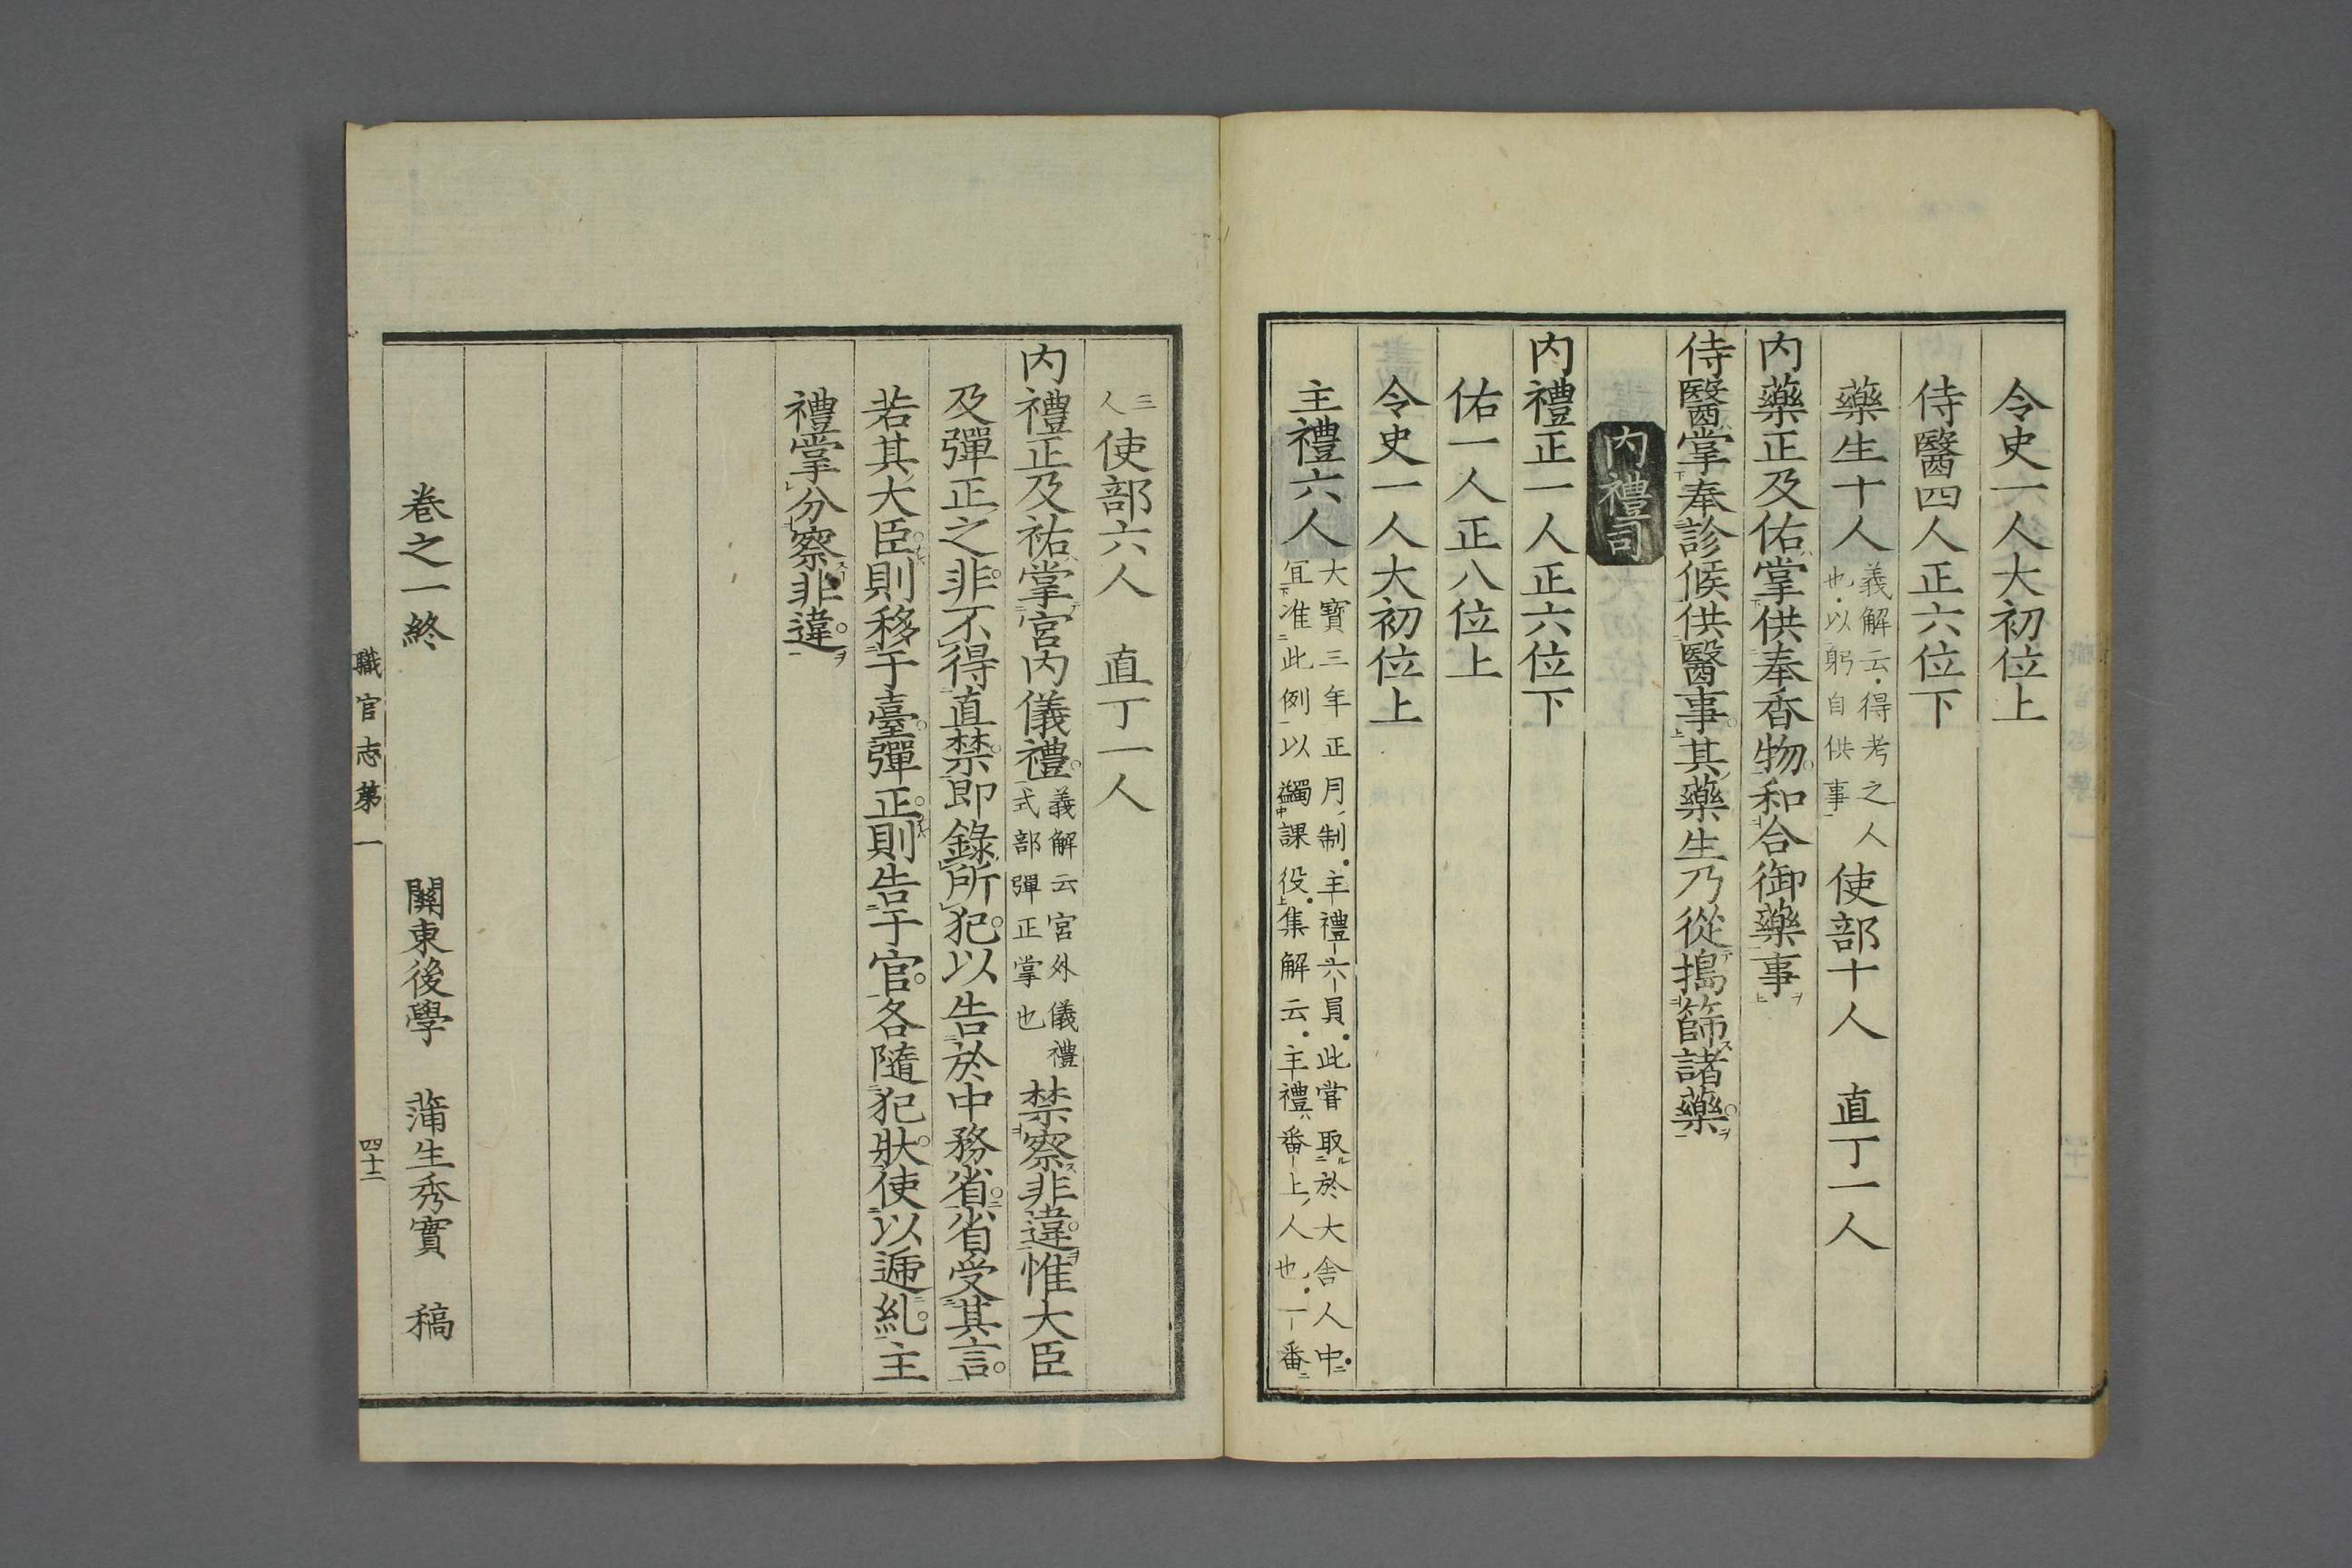 令史一人大初位上
侍醫四人正六位下
藥生十人義解云得考之人也以躬自供事使部十人 直丁一人
内藥正及佑掌供奉香物和合御藥事
侍醫掌奉診候供醫事其藥生乃從搗篩諸藥
内禮司
内禮正一人正六位下
佑一人正八位上
令史一人大初位上
主禮六人大寶三年正月制主禮六員此嘗取於大舍人中宜准此例以蠲課役集解云主禮番上人也一番
三人使部六人 直丁一人
内禮正及祐掌宮内儀禮義解云宮外儀禮式部彈正掌也禁察非違惟大臣
及彈正之非不得直禁即錄所犯以告於中務省省受其言
若其大臣則移于臺彈正則告于官各隨犯狀使以遞糺主
禮掌分察非違
卷之一終 關東後學 蒲生秀實 稿
職官志第一 四十二